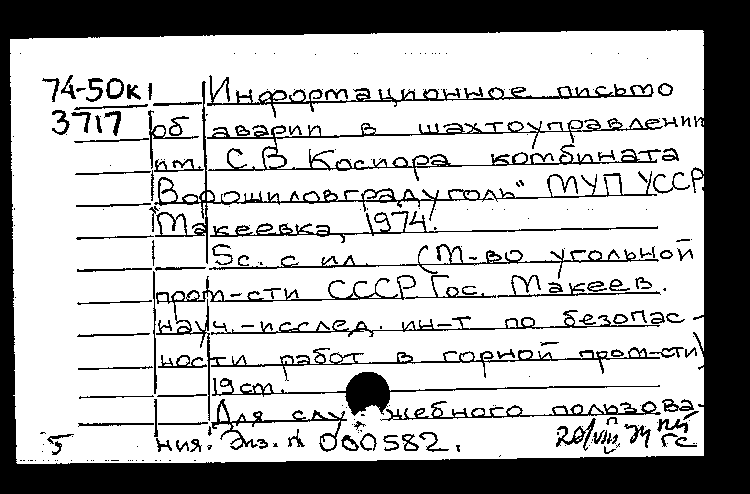 74-50к Информационное письмо
3717 об аварии в шахтоуправлении
им. С.В. Косиора комбината
"Ворошиловградуголь" МУП УССР.
Макеевка, 1974.
5с. с ил. (М-во угольной
пром-сти СССР Гос. Макеев.
науч.-исслед. ин-т по безопас-
ности работ в горной пром-сти)
19 см.
Для служебного пользова-
5 ния. Экз. № 000582.